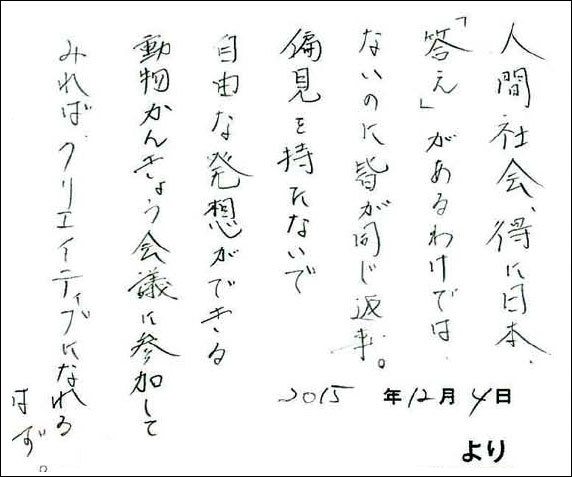 人間社会、得に日本、
「答え」があるわけでは
ないのに皆が同じ返事。
偏見を持たないで
自由な発想ができる
動物かんきょう会議に参加して
みれば、クリエイティブになれる
はず。
2015 年12月4日
より